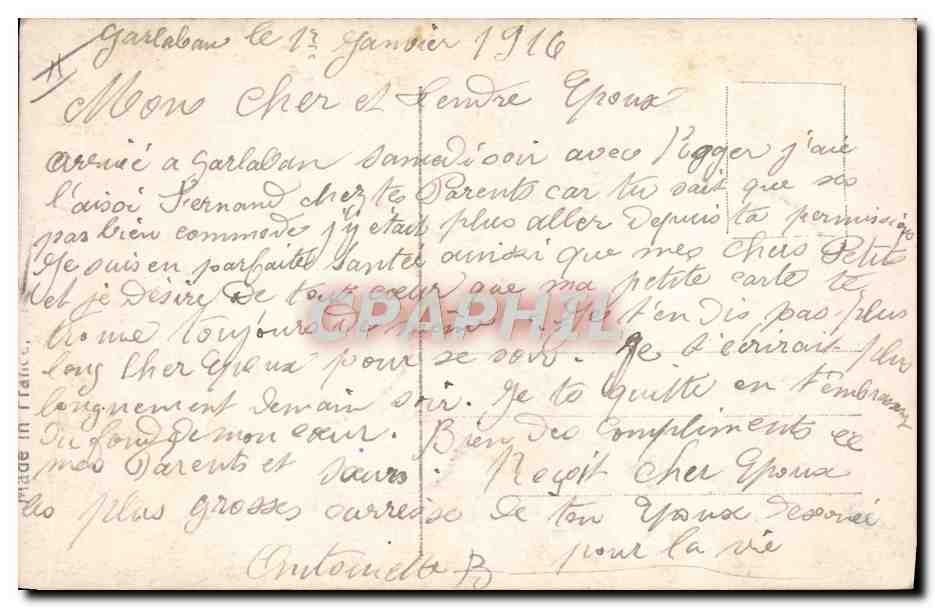 Garlaban le 1r Janvier 1916
Mon cher et tendre Epoux
arrivé a Garlaban samedi soir avec Roger j'ai
l'aisoi Fernand chez tes Parents car tu sait que ses
pas bien commode j'y était plus aller depuis ta permission
Je suis en parfaite santé ainsi que mes chers Petits
et je désire de tout cœur que ma petite carte te
trouve toujours de même. Je t'en dis pas plus
long cher Epoux pour se soir. Je t'écrirait plus
longuement demain soir. Je te quitte en t'embrassant
du fond de mon cœur. Bien des compliments de
mes Parents et sœurs. Reçoit cher Epoux
les plus grosses carresse de ton Epoux devouée
pour la vie
Antoinette B
CPAPHIL.com
Made in France.